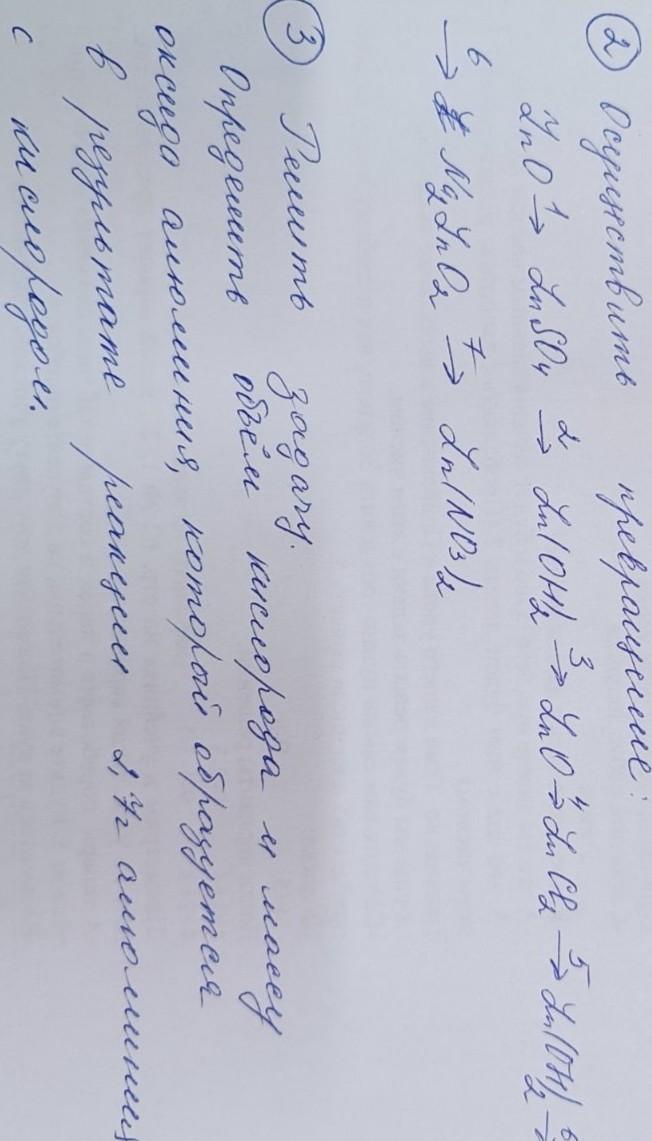 ② Осуществить превращение:
ZnO →¹ ZnSO₄ →² Zn(OH)₂ →³ ZnO →⁴ ZnCl₂ →⁵ Zn(OH)₂ →⁶
→⁶ Na₂ZnO₂ →⁷ Zn(NO₃)₂
③ Решить задачу.
Определить объём кислорода и массу
оксида алюминия, который образуется
в результате реакции 2,7г алюминия
с кислородом.